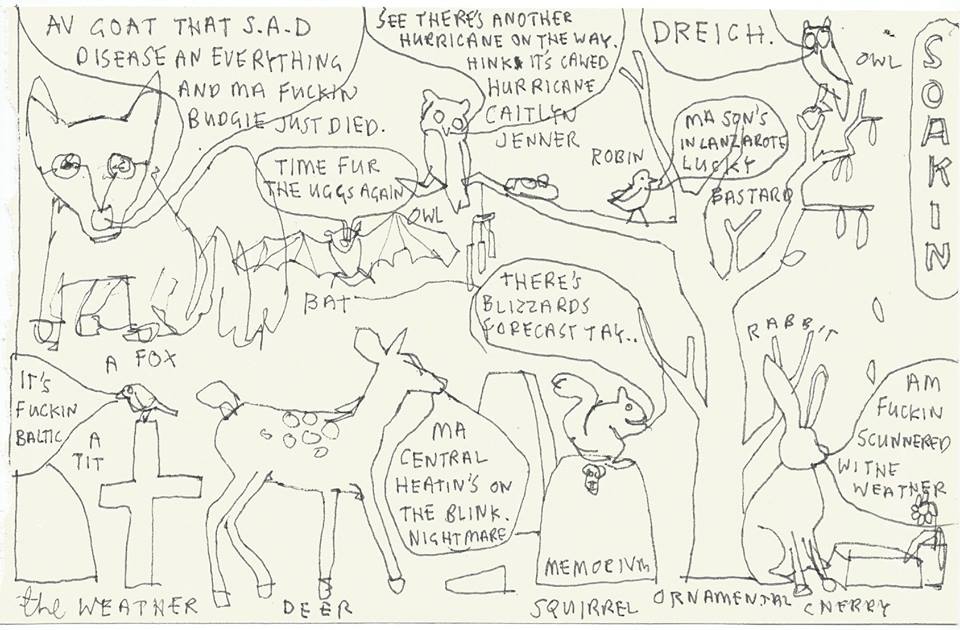 AV GOAT THAT S.A.D
DISEASE AN EVERYTHING
AND MA FUCKIN
BUDGIE JUST DIED.
SEE THERE'S ANOTHER
HURRICANE ON THE WAY.
HINK IT'S CAWED
HURRICANE
CAITLYN
JENNER
DREICH.
OWL
SOAKIN
TIME FUR
THE UGGS AGAIN
OWL
ROBIN
MA SON'S
IN LANZAROTE
LUCKY
BASTARD
BAT
A FOX
THERE'S
BLIZZARDS
FORECAST TAY..
RABBIT
IT'S
FUCKIN
BALTIC
A
TIT
MA
CENTRAL
HEATIN'S ON
THE BLINK.
NIGHTMARE
AM
FUCKIN
SCUNNERED
WI THE
WEATHER
MEMORIUM
the WEATHER
DEER
SQUIRREL
ORNAMENTAL CHERRY